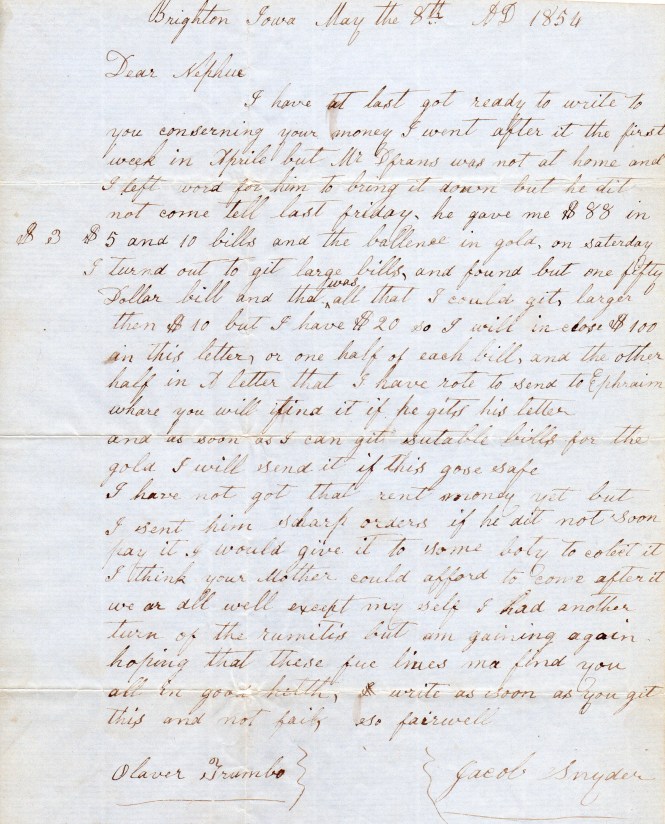 Brighton Iowa May the 8th AD 1854
Dear Nephue
I have at last got ready to write to
you conserning your money I went after it the first
week in Aprile but Mr was not at home and
I left word for him to bring it down but he dit
not come tell last friday. he gave me $88 in
$3 $5 and 10 bills and the ballence in gold, on saterday
I turnd out to git large bills, and found but one fifty
Dollar bill and that was all that I could git, larger
then $10 but I have $20 so I will in close $100
in this letter, or one half of each bill, and the other
half in A letter that I have rote to send to Ephraim
whare you will find it if he gits his letter
and as soon as I can git sutable bills for the
gold I will send it if this gose safe
I have not got that rent money yet but
I sent him sharp orders if he dit not soon
pay it I would give it to some boty to colect it
I think your Mother could afford to come after it
we ar all well except my self I had another
turn of the rumitis but am gaining again
hoping that these fue lines ma find you
all in good helth, & write as soon as you get
this and not fail, so fairwell
Olaver Trumbo Jacob Snyder